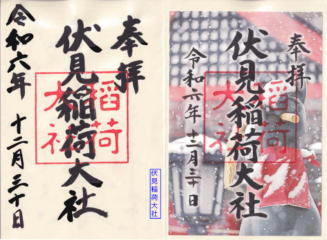 奉拝
伏見稲荷大社
令和六年 十二月三十日
稲荷
大社
伏見稲荷大社
奉拝
伏見稲荷大社
令和六年十二月三十日
稲荷
大社